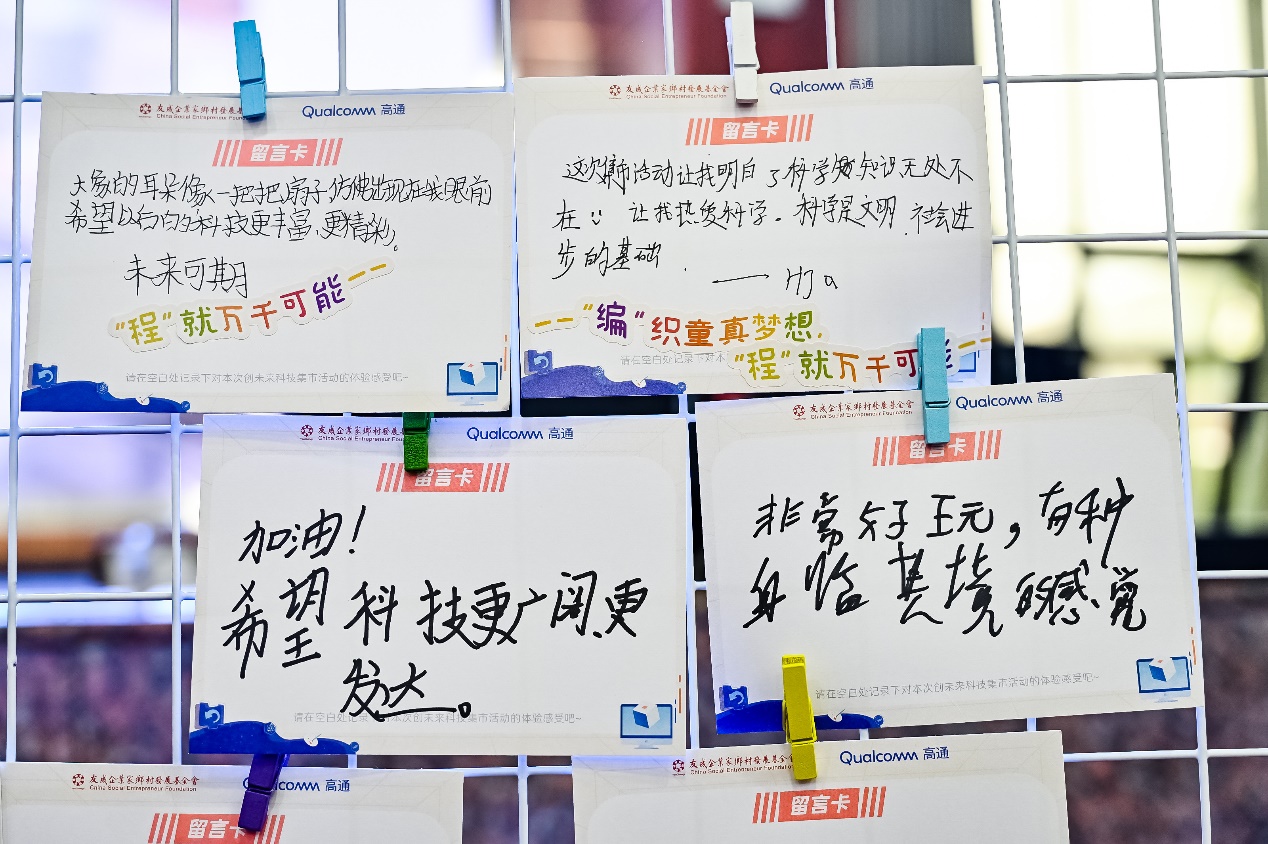 友成企業家鄉村發展基金會
China Social Entrepreneur Foun
Qualcomm 高通
留言卡
大象的耳朵像一把把扇子,仿佛出现在我眼前
希望以后的科技更丰富,更精彩。
未来可期
"程"就万千可能——
请在空白处记录下对本次创未来科技集市活动的体验感受吧~
友成企業家鄉村發展基金會
China Social Entrepreneur Foundation
Qualcomm 高通
留言卡
这次集市活动让我明白了科学知识无处不
在 让我热爱科学。科学是文明 社会进
步的基础.
——
——"编"织童真梦想,
请在空白处记录下对本
"程"就万千可能——
友成企業家鄉村發展基金會
China Social Entrepreneur
Qualcomm 高通
留言卡
加油!
希望科技更广阔、更
发达。
请在空白处记录下对本次创未来科技集市活动的体验感受吧~
友成企業家鄉村發展基金會
China Social Entrepreneur Foundation
Qualcomm 高通
留言卡
非常好玩,有种
身临其境的感觉
请在空白处记录下对本次创未来科技集市活动的体验感受吧~
友成企業家鄉村發展基金會
China Social Entrepreneur Foundation
Qualcomm 高通
留言卡
友成企業家鄉村發展基金會
China Social Entrepreneur Foundation
Qualcomm 高通
留言卡